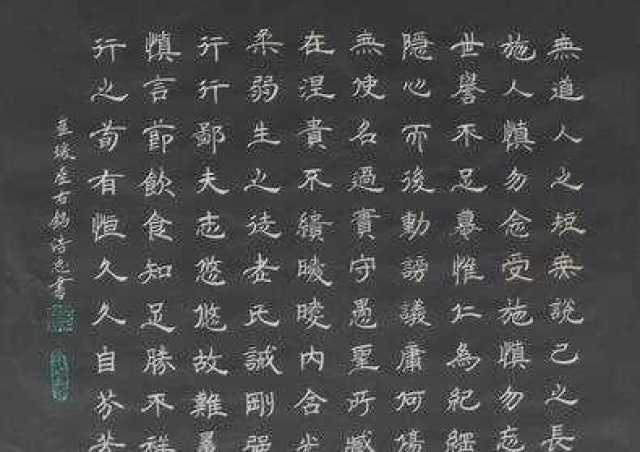 無道人之短無說己之長
施人慎勿念受施慎勿忘
世譽不足慕惟仁為紀綱
隱心而後動謗議庸何傷
無使名過實守愚聖所臧
在涅貴不緇曖曖內含光
柔弱生之徒老氏誡剛強
行行鄙夫志悠悠故難量
慎言節飲食知足勝不祥
行之苟有恒久久自芬芳
崔瑗座右銘書